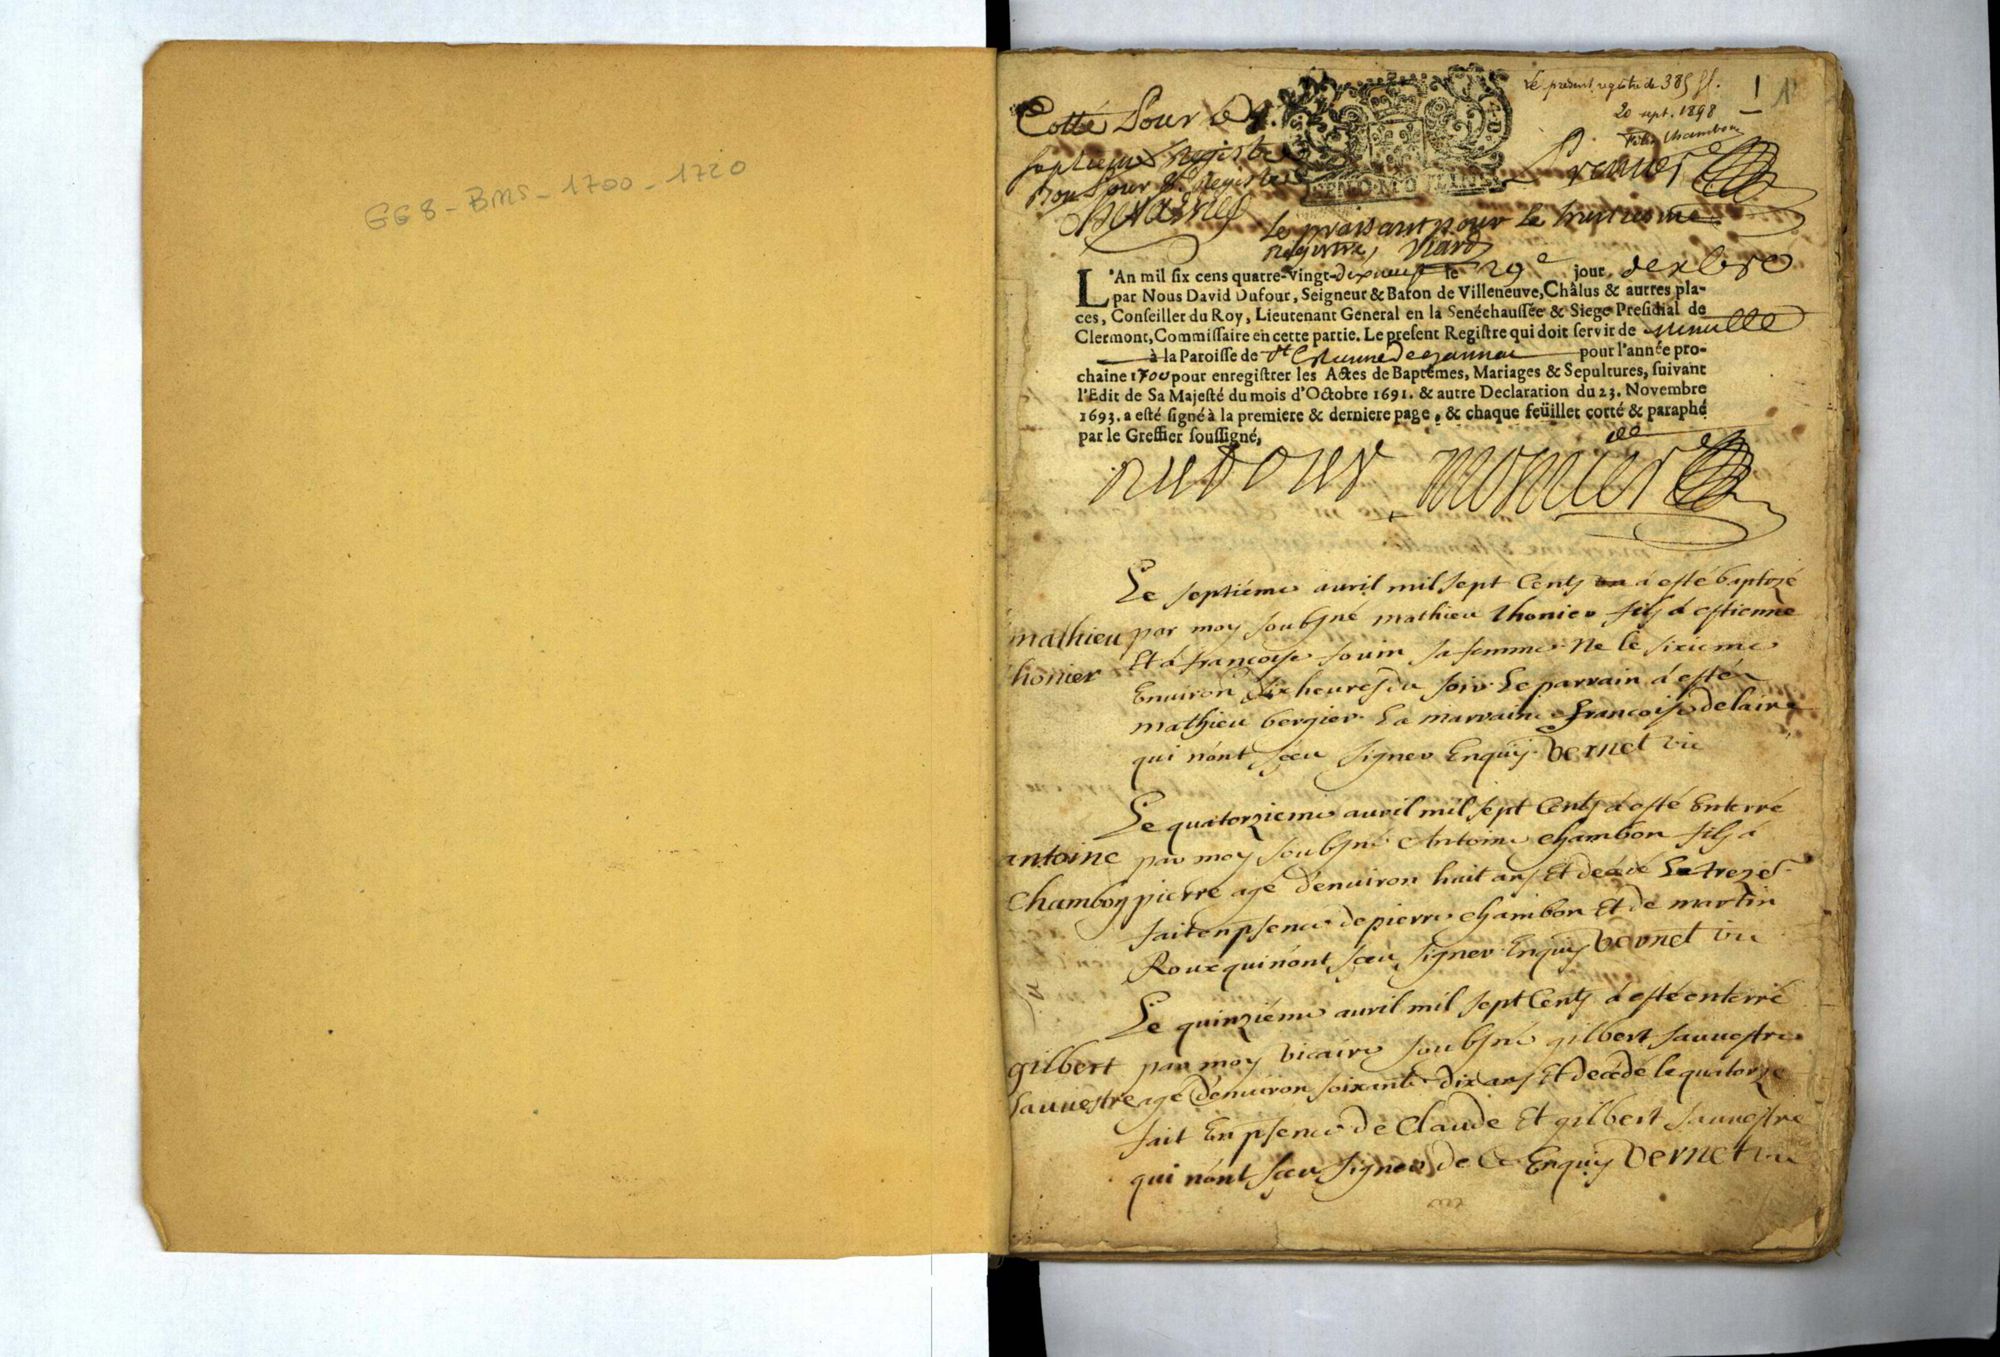 GG8 - BMS - 1700 - 1720
Le present registre de 385 ff.
20 sept. 1898
1
Cotté Pour le 7.
septieme Registre
Bon pour 8e Registre
GEN. D. MOULINS
Premier
Le praisant pour le huitiesme
registre, Viard
L'An mil six cens quatre-vingt-dixneuf le 29e jour dexbre
par Nous David Dufour, Seigneur & Baron de Villeneuve, Châlus & autres pla-
ces, Conseiller du Roy, Lieutenant General en la Senéchaussée & Siege Presidial de
Clermont, Commissaire en cette partie. Le present Registre qui doit servir de minutte
à la Paroisse de St Estienne de gannat pour l'année pro-
chaine 1700 pour enregistrer les Actes de Baptêmes, Mariages & Sepultures, suivant
l'Edit de Sa Majesté du mois d'Octobre 1691. & autre Declaration du 23. Novembre
1693. a esté signé à la premiere & derniere page, & chaque feüillet cotté & paraphé
par le Greffier soussigné,
Dufour Monier
Le septiéme auril mil sept Cents a esté baptizé
mathieu par moy soubsné mathieu thonier fils a estienne
thonier Et a françoise souin sa femme Ne le sixieme
Enuiron dix heures du soir Le parrain a esté
mathieu bergier La marraine françoise delaire
qui n'ont sceu signer Enquis Vernet vic
Le quatorzieme auril mil sept Cents a esté Enterré
antoine par moy soubsné Antoine Chambon fils a
Chambon pierre agé d'enuiron huit ans Et decédé Le treze
fait en psence de pierre Chambon Et de martin
Roux qui n'ont sceu signer Enquis Vernet vic
Le quinziéme auril mil sept Cents a esté enterré
gilbert par moy vicaire soubsné gilbert sauuestre
sauuestre agé d'enuiron soixante dix ans Et decédé le quatorze
fait En psence de Claude Et gilbert sauuestre
qui n'ont sceu signer de ce Enquis Vernet vic